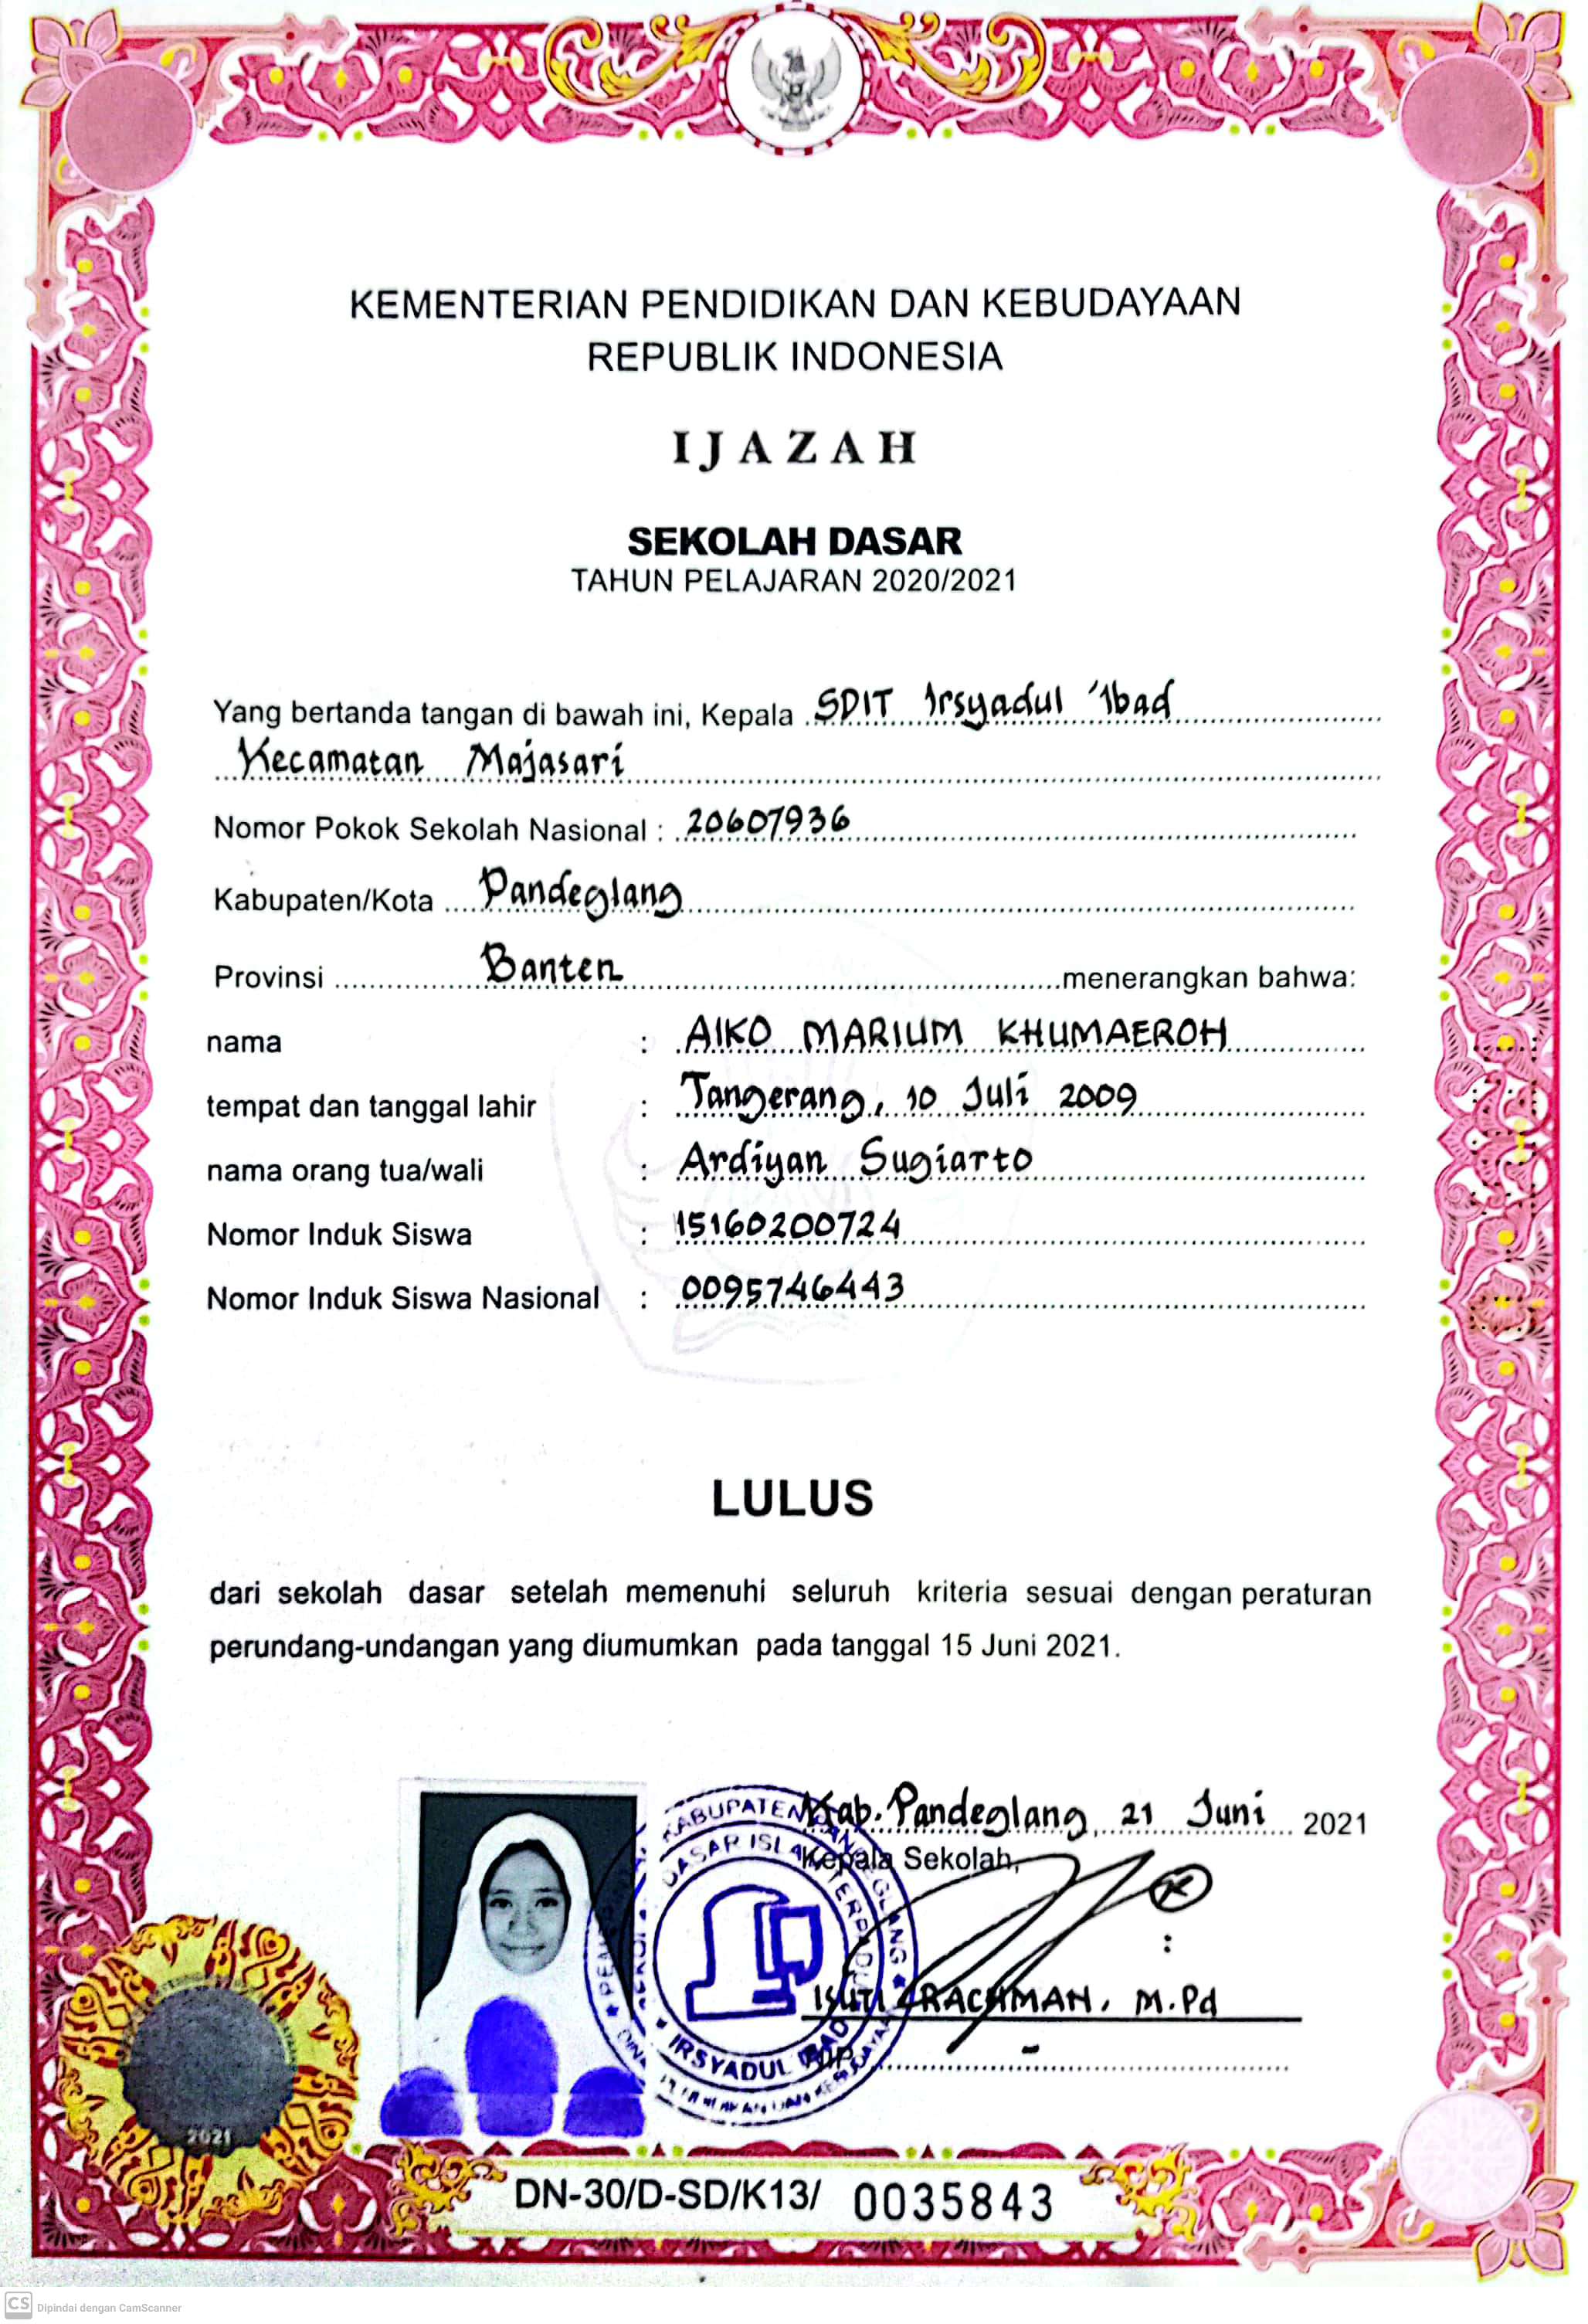 KEMENTERIAN PENDIDIKAN DAN KEBUDAYAAN
REPUBLIK INDONESIA
IJAZAH
SEKOLAH DASAR
TAHUN PELAJARAN 2020/2021
Yang bertanda tangan di bawah ini, Kepala SDIT Irsyadul 'Ibad
Kecamatan Majasari
Nomor Pokok Sekolah Nasional : 20607936
Kabupaten/Kota Pandeglang
Provinsi Banten menerangkan bahwa:
nama : AIKO MARIUM KHUMAEROH
tempat dan tanggal lahir : Tangerang, 10 Juli 2009
nama orang tua/wali : Ardiyan Sugiarto
Nomor Induk Siswa : 15160200724
Nomor Induk Siswa Nasional : 0095746443
LULUS
dari sekolah dasar setelah memenuhi seluruh kriteria sesuai dengan peraturan
perundang-undangan yang diumumkan pada tanggal 15 Juni 2021.
Kab. Pandeglang, 21 Juni 2021
Kepala Sekolah,
RACHMAN, M.Pd
NIP. -
KABUPATEN PANDEGLANG
DASAR ISLAM TERPADU
IRSYADUL IBAD
2021
DN-30/D-SD/K13/ 0035843
CS Dipindai dengan CamScanner